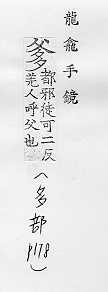 龍龕手鏡
爹
都邪徒可二反
羌人呼父也
（多部
P178）